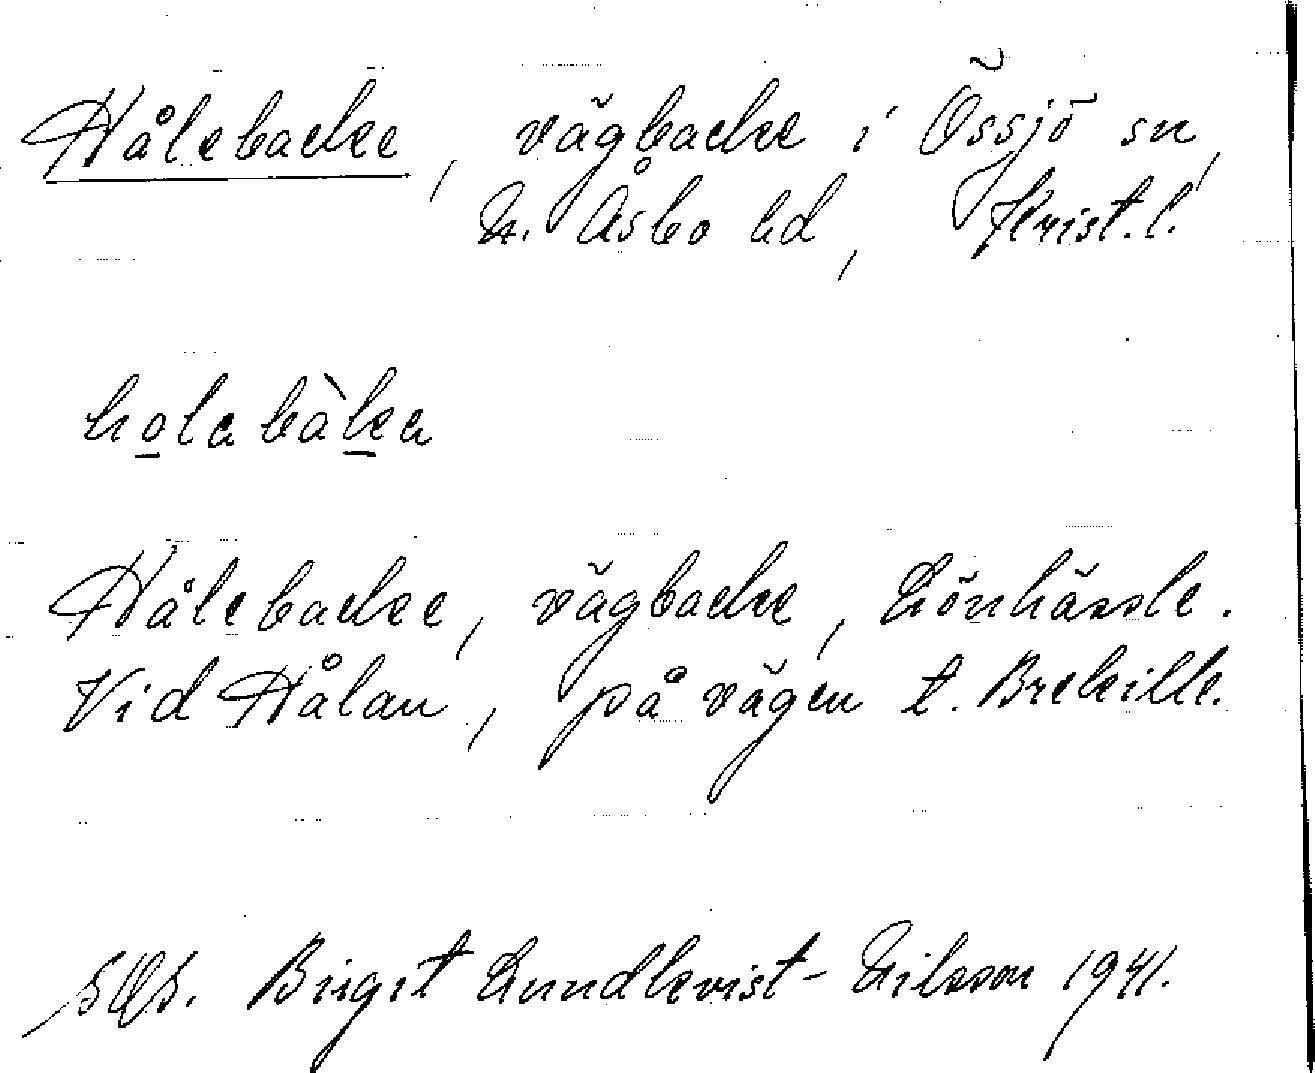 Hålebacke, vägbacke i Össjö sn,
N. Åsbo hd, Krist. l.
holabàka
Hålebacke, vägbacke, Lönhässle.
Vid Hålan, på vägen t. Brekille.
SOS. Birgit Lundkvist-Nilsson 1941.